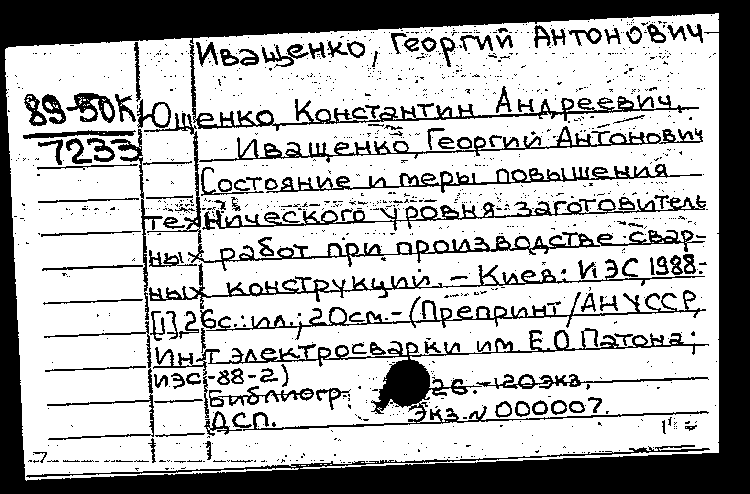 Иващенко, Георгий Антонович
89-50К
7233
Ющенко, Константин Андреевич,
Иващенко, Георгий Антонович
Состояние и меры повышения
технического уровня заготовитель
ных работ при производстве свар-
ных конструкций. – Киев: ИЭС, 1988.-
[1], 26с.: ил.; 20см.- (Препринт/АН УССР,
Ин-т электросварки им. Е.О. Патона;
ИЭС-88-2)
Библиогр. 26. -120экз.
ДСП. Экз. № 000007.